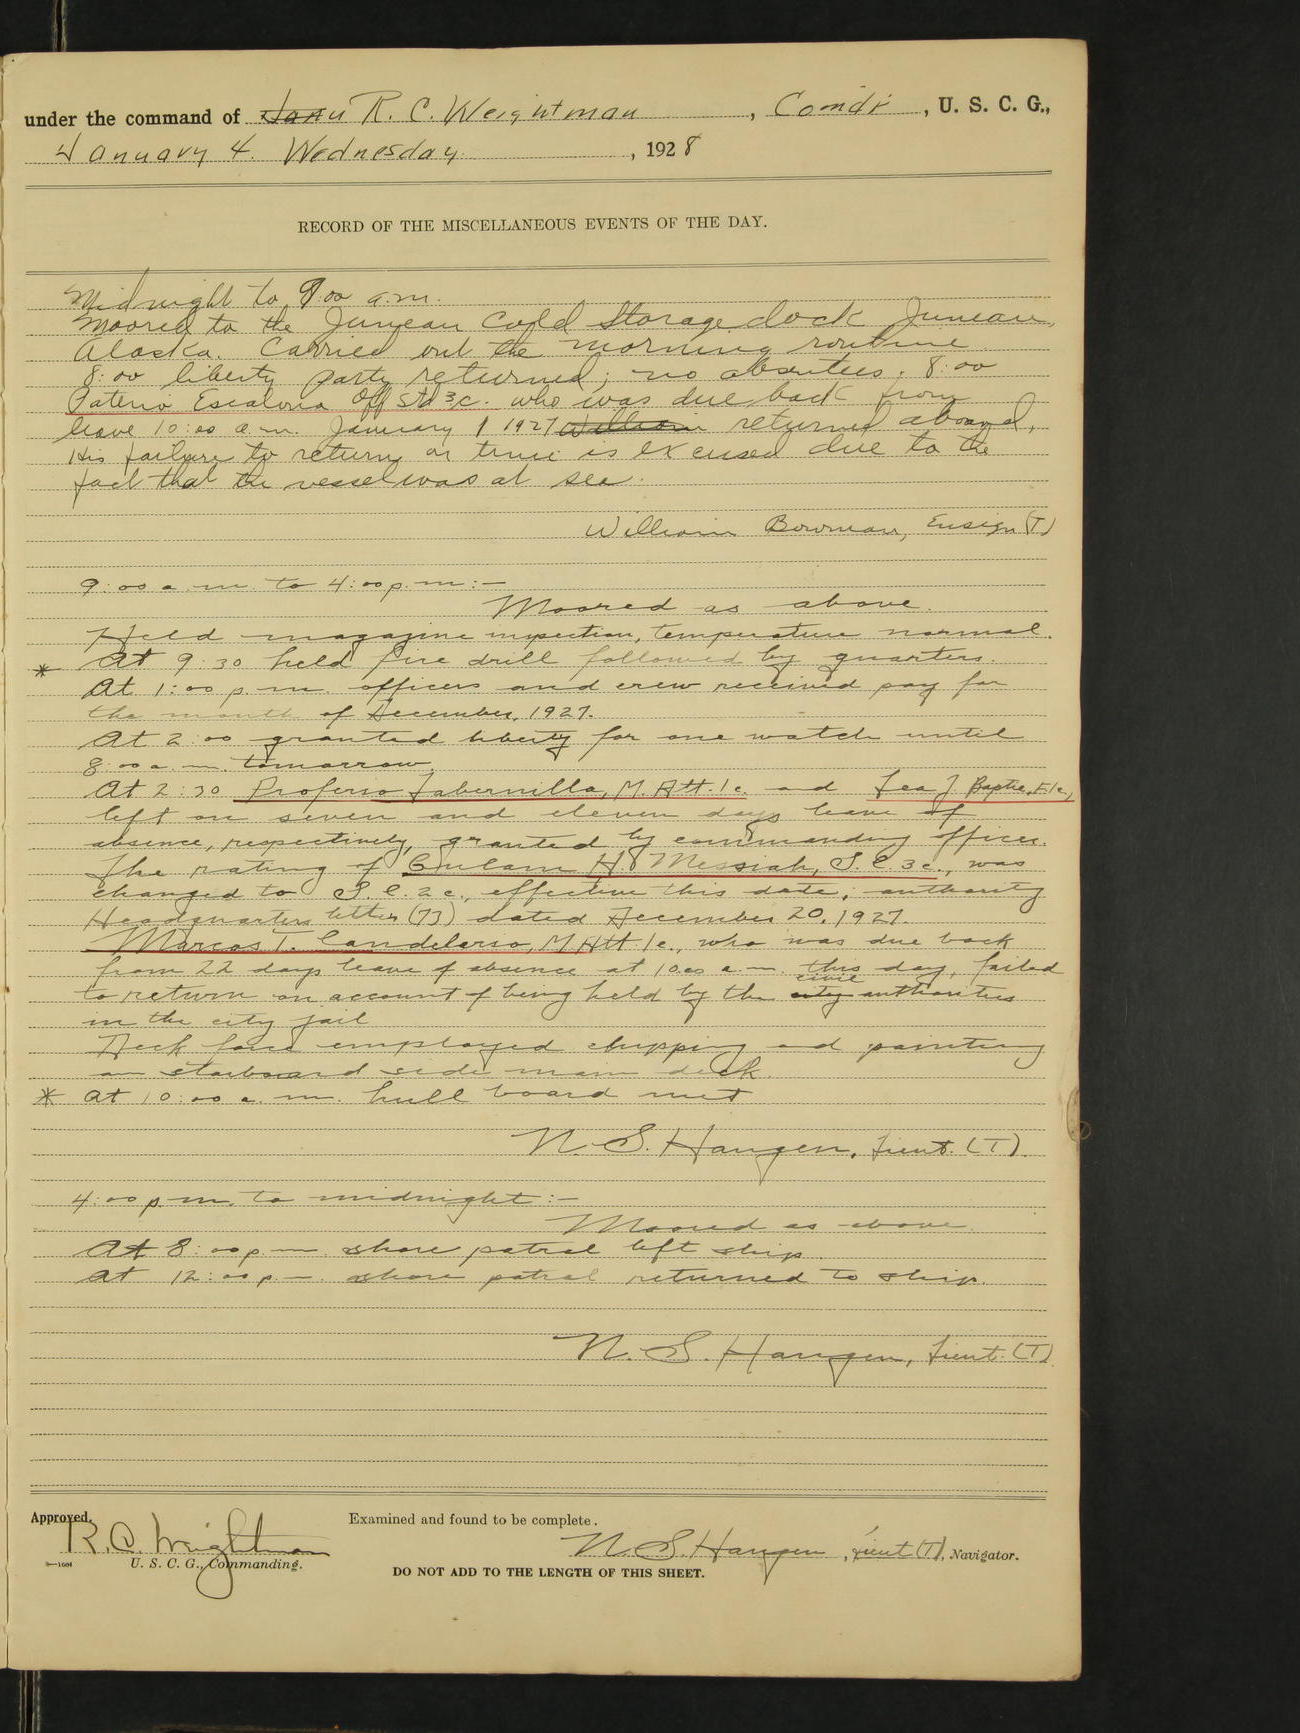 under the command of Janu R. C. Weightman, Comdr, U. S. C. G.,
January 4. Wednesday, 1928
RECORD OF THE MISCELLANEOUS EVENTS OF THE DAY.
Midnight to 9:00 a.m.
Moored to the Juneau Cold Storage dock Juneau,
Alaska. Carried out the morning routine
8:00 liberty party returned; no absentees. 8:00
Paterio Escalona Off Std 3/c. who was due back from
leave 10:00 a.m. January 1 1927 William returned aboard,
His failure to return on time is excused due to the
fact that the vessel was at sea.
William Bowman, Ensign (T)
9:00 a.m. to 4:00 p.m:—
Moored as above.
Held magazine inspection, temperature normal.
* At 9:30 held fire drill followed by quarters.
At 1:00 p.m. officers and crew received pay for
the month of December, 1927.
At 2:00 granted liberty for one watch until
8:00 a.m. tomorrow.
At 2:30 Proferio Tabernilla, M.Att.1c. and Lea J Baptie, F.1c,
left on seven and eleven days leave of
absence, respectively, granted by commanding officer.
The rating of H. Messiah, S.C.3c., was
changed to S.C.2c., effective this date; authority
Headquarters letter (73) dated December 20, 1927.
Marcos T. Candelario, M Att 1c., who was due back
from 22 days leave of absence at 10:00 a.m. this day, failed
to return on account of being held by the city civil authorities
in the city jail
Deck force employed chipping and painting
on starboard side main deck.
* At 10:00 a.m. hull board met
N. S. Haugen, Lieut. (T).
4:00 p.m. to midnight:—
Moored as above.
At 8:00 p.m. shore patrol left ship
At 12:00 p.m. shore patrol returned to ship.
N. S. Haugen, Lieut. (T)
Approved.
R. C. Weightman
U. S. C. G., Commanding.
Examined and found to be complete.
N. S. Haugen, Lieut (T), Navigator.
DO NOT ADD TO THE LENGTH OF THIS SHEET.